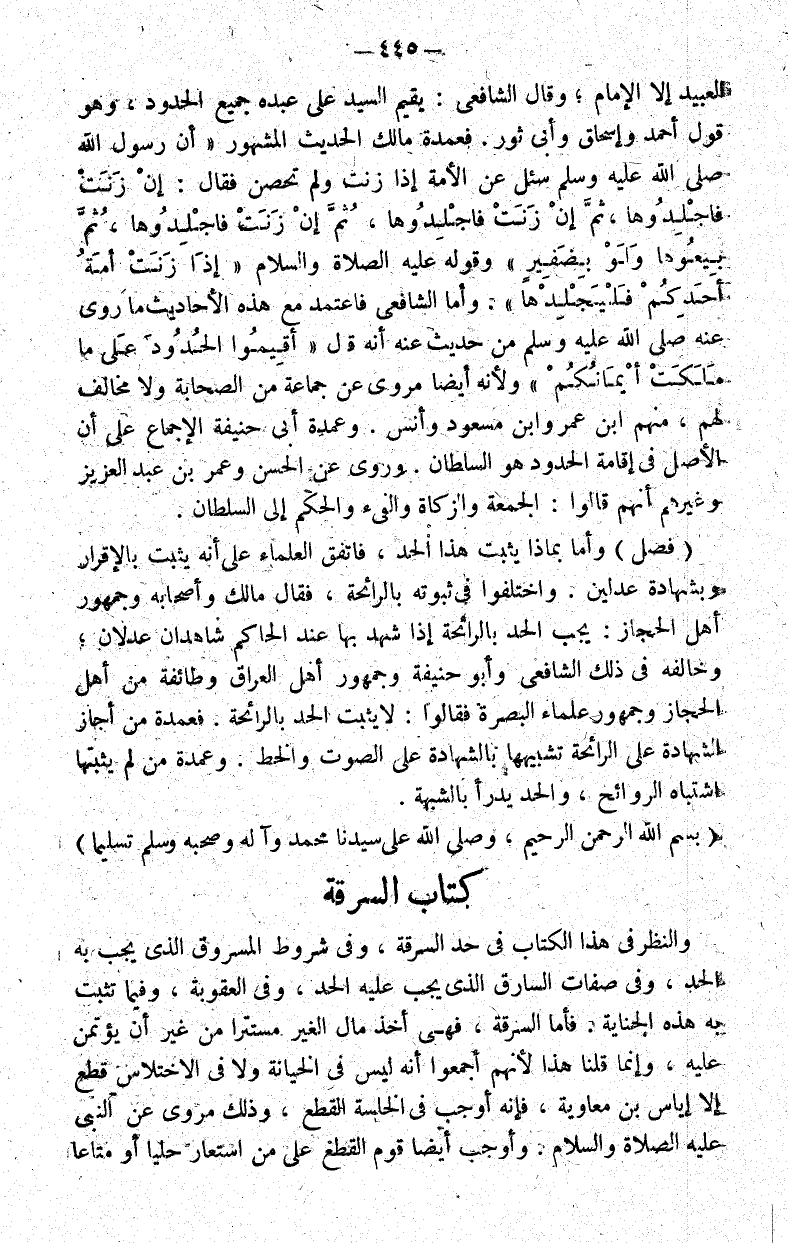 — ٤٤٥ —
العبيد إلا الإمام ؛ وقال الشافعى : يقيم السيد على عبده جميع الحدود ، وهو
قول أحمد وإسحاق وأبى ثور . فعمدة مالك الحديث المشهور « أن رسول الله
صلى الله عليه وسلم سئل عن الأمة إذا زنت ولم تحصن فقال : إنْ زَنَتْ
فاجْلِدُوها ، ثمَّ إنْ زَنَتْ فاجْلِدُوها ، ثُمَّ إنْ زَنَتْ فاجْلِدُوها ، ثُمَّ
بِيعُوها وَلَوْ بِضَفِيرٍ » وقوله عليه الصلاة والسلام « إذَا زَنَتْ أمَةُ
أحَدِكُمْ فَلْيَجْلِدْها » . وأما الشافعى فاعتمد مع هذه الأحاديث ما روى
عنه صلى الله عليه وسلم من حديث عنه أنه قال « أقِيمُوا الحُدُودَ عَلى ما
مَلَكَتْ أيْمَانُكُمْ » ولأنه أيضا مروى عن جماعة من الصحابة ولا مخالف
لهم ، منهم ابن عمر وابن مسعود وأنس . وعمدة أبى حنيفة الإجماع على أن
الأصل فى إقامة الحدود هو السلطان . وروى عن الحسن وعمر بن عبد العزيز
وغيرهم أنهم قالوا : الجمعة والزكاة والفىء والحكم إلى السلطان .
( فصل ) وأما بماذا يثبت هذا الحد ، فاتفق العلماء على أنه يثبت بالإقرار
وبشهادة عدلين . واختلفوا فى ثبوته بالرائحة ، فقال مالك وأصحابه وجمهور
أهل الحجاز : يجب الحد بالرائحة إذا شهد بها عند الحاكم شاهدان عدلان ؛
وخالفه فى ذلك الشافعى وأبو حنيفة وجمهور أهل العراق وطائفة من أهل
الحجاز وجمهور علماء البصرة فقالوا : لايثبت الحد بالرائحة . فعمدة من أجاز
الشهادة على الرائحة تشبيهها بالشهادة على الصوت والخط . وعمدة من لم يثبتها
اشتباه الروائح ، والحد يدرأ بالشبهة .
( بسم الله الرحمن الرحيم ، وصلى الله على سيدنا محمد وآله وصحبه وسلم تسليما )
كتاب السرقة
والنظر فى هذا الكتاب فى حد السرقة ، وفى شروط المسروق الذى يجب به
الحد ، وفى صفات السارق الذى يجب عليه الحد ، وفى العقوبة ، وفيما تثبت
به هذه الجناية . فأما السرقة ، فهى أخذ مال الغير مستترا من غير أن يؤتمن
عليه ، وإنما قلنا هذا لأنهم أجمعوا أنه ليس فى الخيانة ولا فى الاختلاس قطع
إلا إياس بن معاوية ، فإنه أوجب فى الخلسة القطع ، وذلك مروى عن النبى
عليه الصلاة والسلام . وأوجب أيضا قوم القطع على من استعار حليا أو متاعا